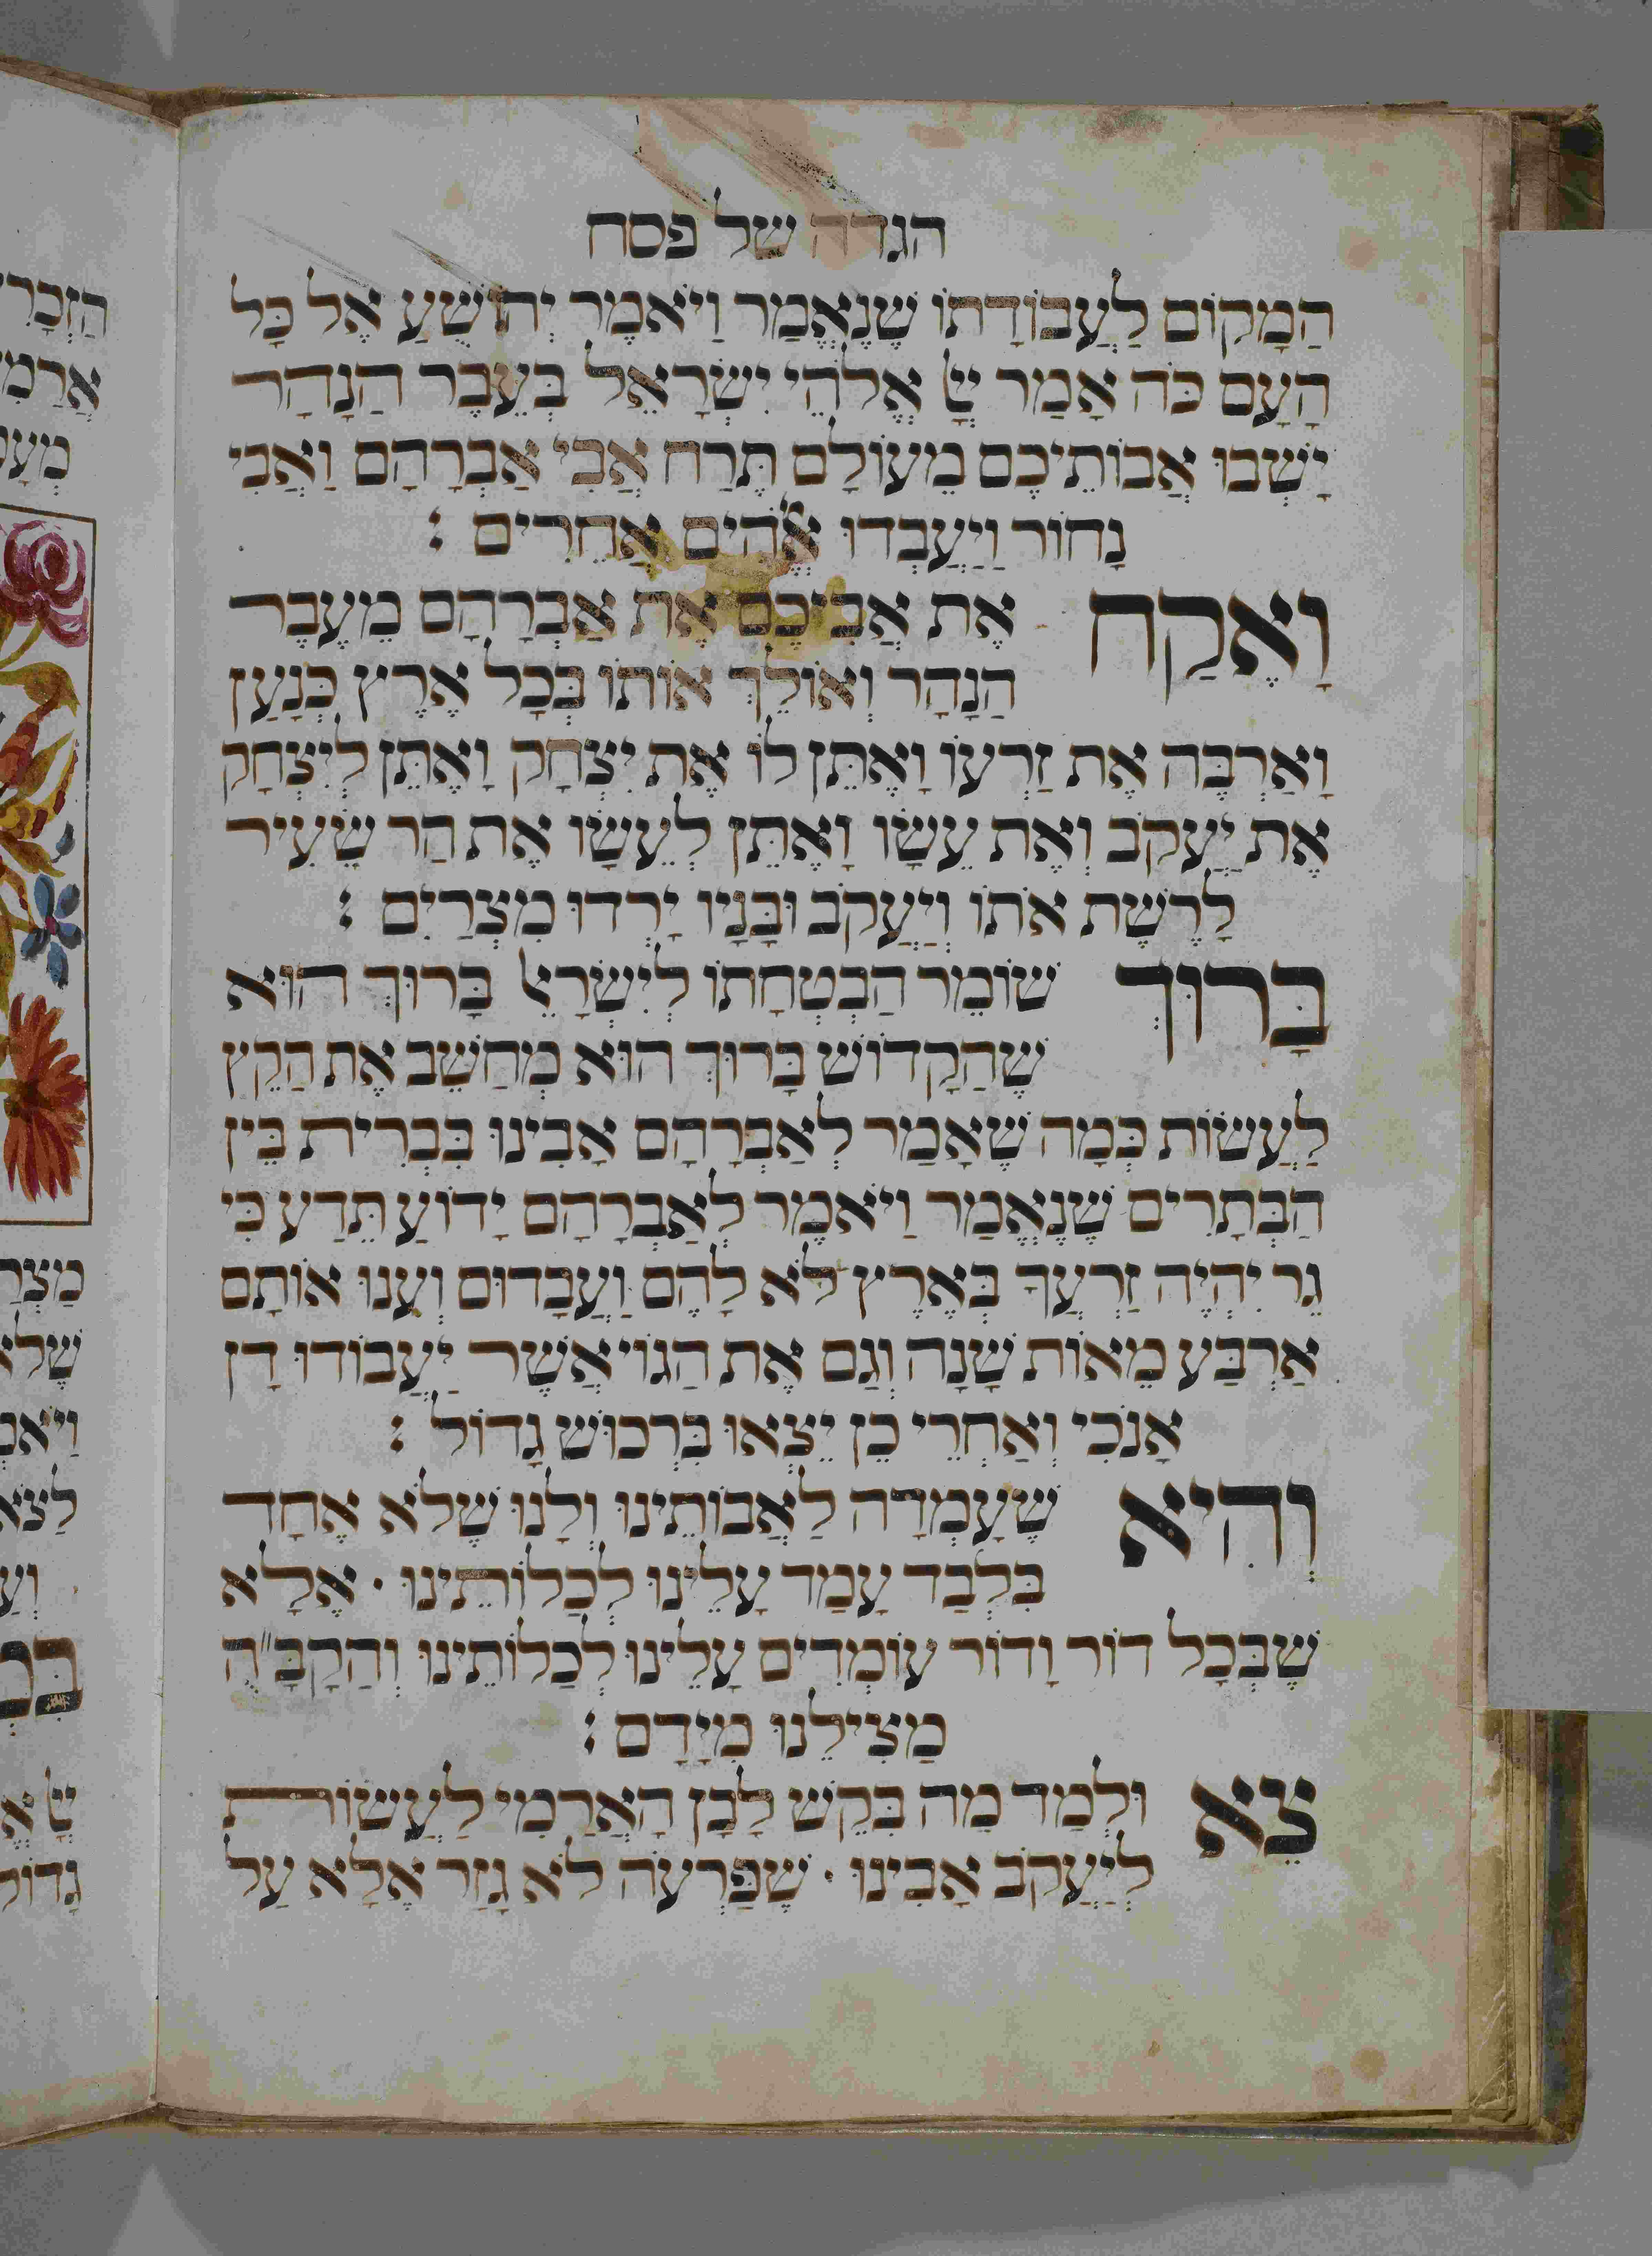 הגדה של פסח
הַמָקוֹם לַעֲבוֹדָתוֹ שֶׁנֶאֱמַר וַיֹאמֶר יְהוֹשֻׁעַ אֶל כָּל
הָעָם כֹּה אָמַר יְיָ אֱלֹהֵי יִשְׂרָאֵל בְּעֵבֶר הַנָהָר
יָשְׁבוּ אֲבוֹתֵיכֶם מֵעוֹלָם תֶּרַח אֲבִי אַבְרָהָם וַאֲבִי
נָחוֹר וַיַעֲבְדוּ אֱלֹהִים אֲחֵרִים :
וָאֶקַח אֶת אֲבִיכֶם אֶת אַבְרָהָם מֵעֶבֶר
הַנָהָר וְאוֹלֵךְ אוֹתוֹ בְּכָל אֶרֶץ כְּנָעַן
וָאַרְבֶּה אֶת זַרְעוֹ וָאֶתֵּן לוֹ אֶת יִצְחָק וָאֶתֵּן לְיִצְחָק
אֶת יַעֲקֹב וְאֶת עֵשָׂו וָאֶתֵּן לְעֵשָׂו אֶת הַר שֵׂעִיר
לָרֶשֶׁת אֹתוֹ וְיַעֲקֹב וּבָנָיו יָרְדוּ מִצְרַיִם :
בָּרוּךְ שׁוֹמֵר הַבְטָחָתוֹ לְיִשְׂרָאֵל בָּרוּךְ הוּא
שֶׁהַקָדוֹשׁ בָּרוּךְ הוּא מְחַשֵּׁב אֶת הַקֵץ
לַעֲשׂוֹת כְּמָה שֶׁאָמַר לְאַבְרָהָם אָבִינוּ בִּבְרִית בֵּין
הַבְּתָרִים שֶׁנֶאֱמַר וַיֹאמֶר לְאַבְרָהָם יָדוֹעַ תֵּדַע כִּי
גֵר יִהְיֶה זַרְעֲךָ בְּאֶרֶץ לֹא לָהֶם וַעֲבָדוּם וְעִנוּ אוֹתָם
אַרְבַּע מֵאוֹת שָׁנָה וְגַם אֶת הַגוֹי אֲשֶׁר יַעֲבוֹדוּ דָן
אָנֹכִי וְאַחְרֵי כֵן יֵצְאוּ בִּרְכוּשׁ גָדוֹל :
וְהִיא שֶׁעָמְדָה לַאֲבוֹתֵינוּ וְלָנוּ שֶׁלֹא אֶחָד
בִּלְבַד עָמַד עָלֵינוּ לְכַלוֹתֵינוּ · אֶלָא
שֶׁבְּכָל דוֹר וָדוֹר עוֹמְדִים עָלֵינוּ לְכַלוֹתֵינוּ וְהַקָבָּ״ה
מַצִילֵנוּ מִיָדָם :
צֵא וּלְמַד מַה בִּקֵשׁ לָבָן הָאֲרַמִי לַעֲשׂוֹת
לְיַעֲקֹב אָבִינוּ · שֶׁפַּרְעֹה לֹא גָזַר אֶלָא עַל